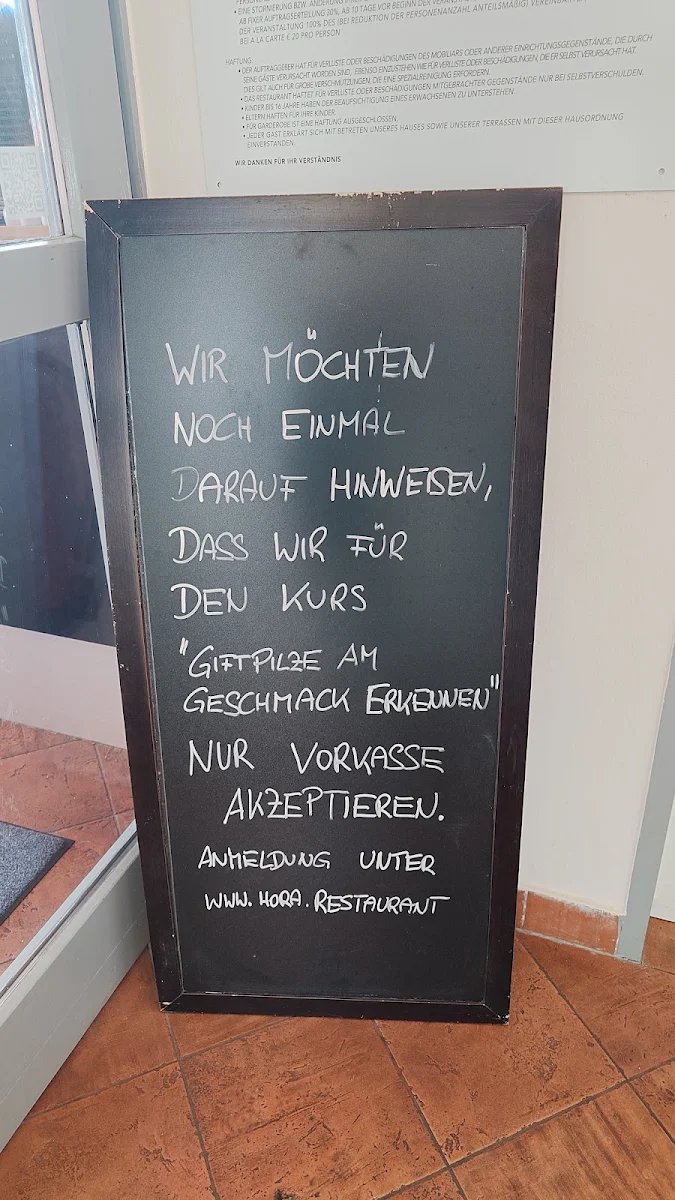 • EINE STORNIERUNG BZW. ÄNDERUNG
AB FIXER AUFTRAGSERTEILUNG 30%, AB 10 TAGE VOR BEGINN DER
DER VERANSTALTUNG 100% DES (BEI REDUKTION DER PERSONENANZAHL ANTEILSMÄßIG)
BEI A LA CARTE € 20 PRO PERSON
HAFTUNG:
• DER AUFTRAGGEBER HAT FÜR VERLUSTE ODER BESCHÄDIGUNGEN DES MOBILIARS ODER ANDERER EINRICHTUNGSGEGENSTÄNDE, DIE DURCH
SEINE GÄSTE VERURSACHT WORDEN SIND, EBENSO EINZUSTEHEN WIE FÜR VERLUSTE ODER BESCHÄDIGUNGEN, DIE ER SELBST VERURSACHT HAT.
DIES GILT AUCH FÜR GROBE VERSCHMUTZUNGEN, DIE EINE SPEZIALREINIGUNG ERFORDERN.
• DAS RESTAURANT HAFTET FÜR VERLUSTE ODER BESCHÄDIGUNGEN MITGEBRACHTER GEGENSTÄNDE NUR BEI SELBSTVERSCHULDEN.
• KINDER BIS 16 JAHRE HABEN DER BEAUFSICHTIGUNG EINES ERWACHSENEN ZU UNTERSTEHEN.
• ELTERN HAFTEN FÜR IHRE KINDER.
• FÜR GARDEROBE IST EINE HAFTUNG AUSGESCHLOSSEN.
• JEDER GAST ERKLÄRT SICH MIT BETRETEN UNSERES HAUSES SOWIE UNSERER TERRASSEN MIT DIESER HAUSORDNUNG
EINVERSTANDEN.
WIR DANKEN FÜR IHR VERSTÄNDNIS
WIR MÖCHTEN
NOCH EINMAL
DARAUF HINWEISEN,
DASS WIR FÜR
DEN KURS
"GIFTPILZE AM
GESCHMACK ERKENNEN"
NUR VORKASSE
AKZEPTIEREN.
ANMELDUNG UNTER
WWW.HORA.RESTAURANT